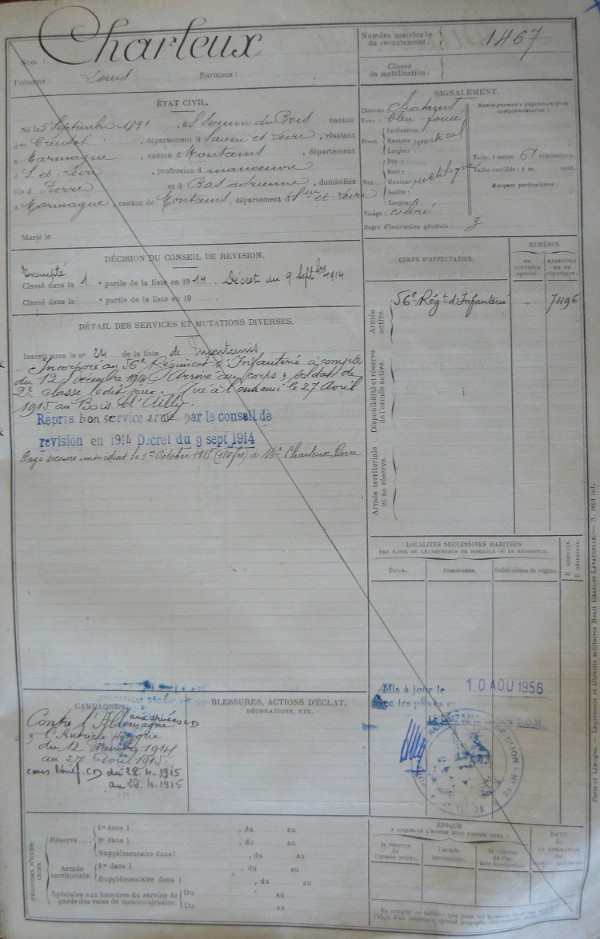 Nom : Charleux
Prénoms : Louis Surnoms :
Numéro matricule du recrutement : 1467
Classe de mobilisation :
ÉTAT CIVIL.
Né le 5 Septembre 1891, à St Sernin du Bois canton
du Creusot, département d Saône et Loire, résidant
à Marmagne, canton d Montcenis, département
d S. et Loire, profession d manoeuvre
fils d Pierre et d Bas adrienne, domiciliés
à Marmagne, canton de Montcenis, département
Marié le
SIGNALEMENT.
Cheveux Chataput
Yeux : bleu foncé
Front. Inclinaison :
Hauteur : vertical
Largeur :
Nez : Dos :
Base :
Hauteur rectiligne
Saillie :
Largeur :
Visage : coloré
Renseignements physionomiques complémentaires :
Taille : 1 mètre 61 centimètres.
Taille rectifiée : 1 m.
Marques particulières :
Degré d'instruction générale : 3
DÉCISION DU CONSEIL DE REVISION.
Exempté
Classé dans la 1 partie de la liste en 1914. Décret du 9 Septbre 1914
Classé dans la partie de la liste en 19
CORPS D'AFFECTATION.
NUMÉROS
Armée active.
56e Régt d'Infanterie
7496
Disponibilité et réserve de l'armée active.
Armée territoriale et sa réserve.
DÉTAIL DES SERVICES ET MUTATIONS DIVERSES.
Inscrit sous le n° 24 de la liste de Montcenis
Incorporé au 56e Régiment d'Infanterie à compter
du 12 Décembre 1914. Arrivé au corps & soldat de
2e classe ledit jour. Tué à l'ennemi le 27 Avril
1915 au Bois d'Ailly.
Repris bon service armé par le conseil de
revision en 1914 Decret du 9 sept 1914
Payé secours immédiat le 1er Octobre 1915 (150frs) à Mr Charleux Pierre
LOCALITÉS SUCCESSIVES HABITÉES
PAR SUITE DE CHANGEMENTS DE DOMICILE OU DE RÉSIDENCE.
Dates.
Communes.
Subdivisions de région.
D. DOMICILE.
R. RÉSIDENCE.
Mis à jour le 10 AOU 1956
avec les pièces
CAMPAGNES.
Contre l'Allemagne
aux armées CD
du 12 Décembre 1914
au 27 Avril 1915
CD du 28.4.1915
au 28.4.1915
BLESSURES, ACTIONS D'ÉCLAT,
DÉCORATIONS, ETC.
Réserve
1re dans l , du au
2e dans l , du au
Supplémentaire dans l , du au
Armée territoriale.
1re dans l , du au
Supplémentaire dans l , du au
Spéciales aux hommes du service de garde des voies de communication
Du au
Du au
ÉPOQUE
la réserve de l'armée active.
l'armée territoriale.
DATE